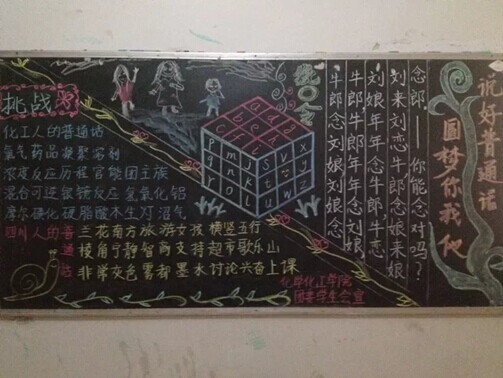 说好普通话
圆梦你我他
念郎——你能念对吗?
刘来刘恋牛郎念娘来娘
刘娘年年念牛郎,牛恋
牛郎年年念刘娘,
牛郎念刘娘刘娘念
挑战
化工人的普通话
氯气药品凝聚溶剂
浓度反应历程官能团主族
混合可逆银镜反应氢氧化铝
硬化硬脂酸木生灯沼气
四川人的普通话
兰花南方旅游女孩横竖五行
棱角宁静智商支持超市歌乐山
非常灰色雾都墨水讨论兴奋上课
p m j
q n k
r o l
化学化工学院
团委学生会宣